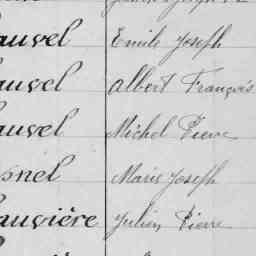 auvel Emile Joseph
auvel Albert François
auvel Michel Pierre
snel Marie Joseph
auvière Julien Pierre